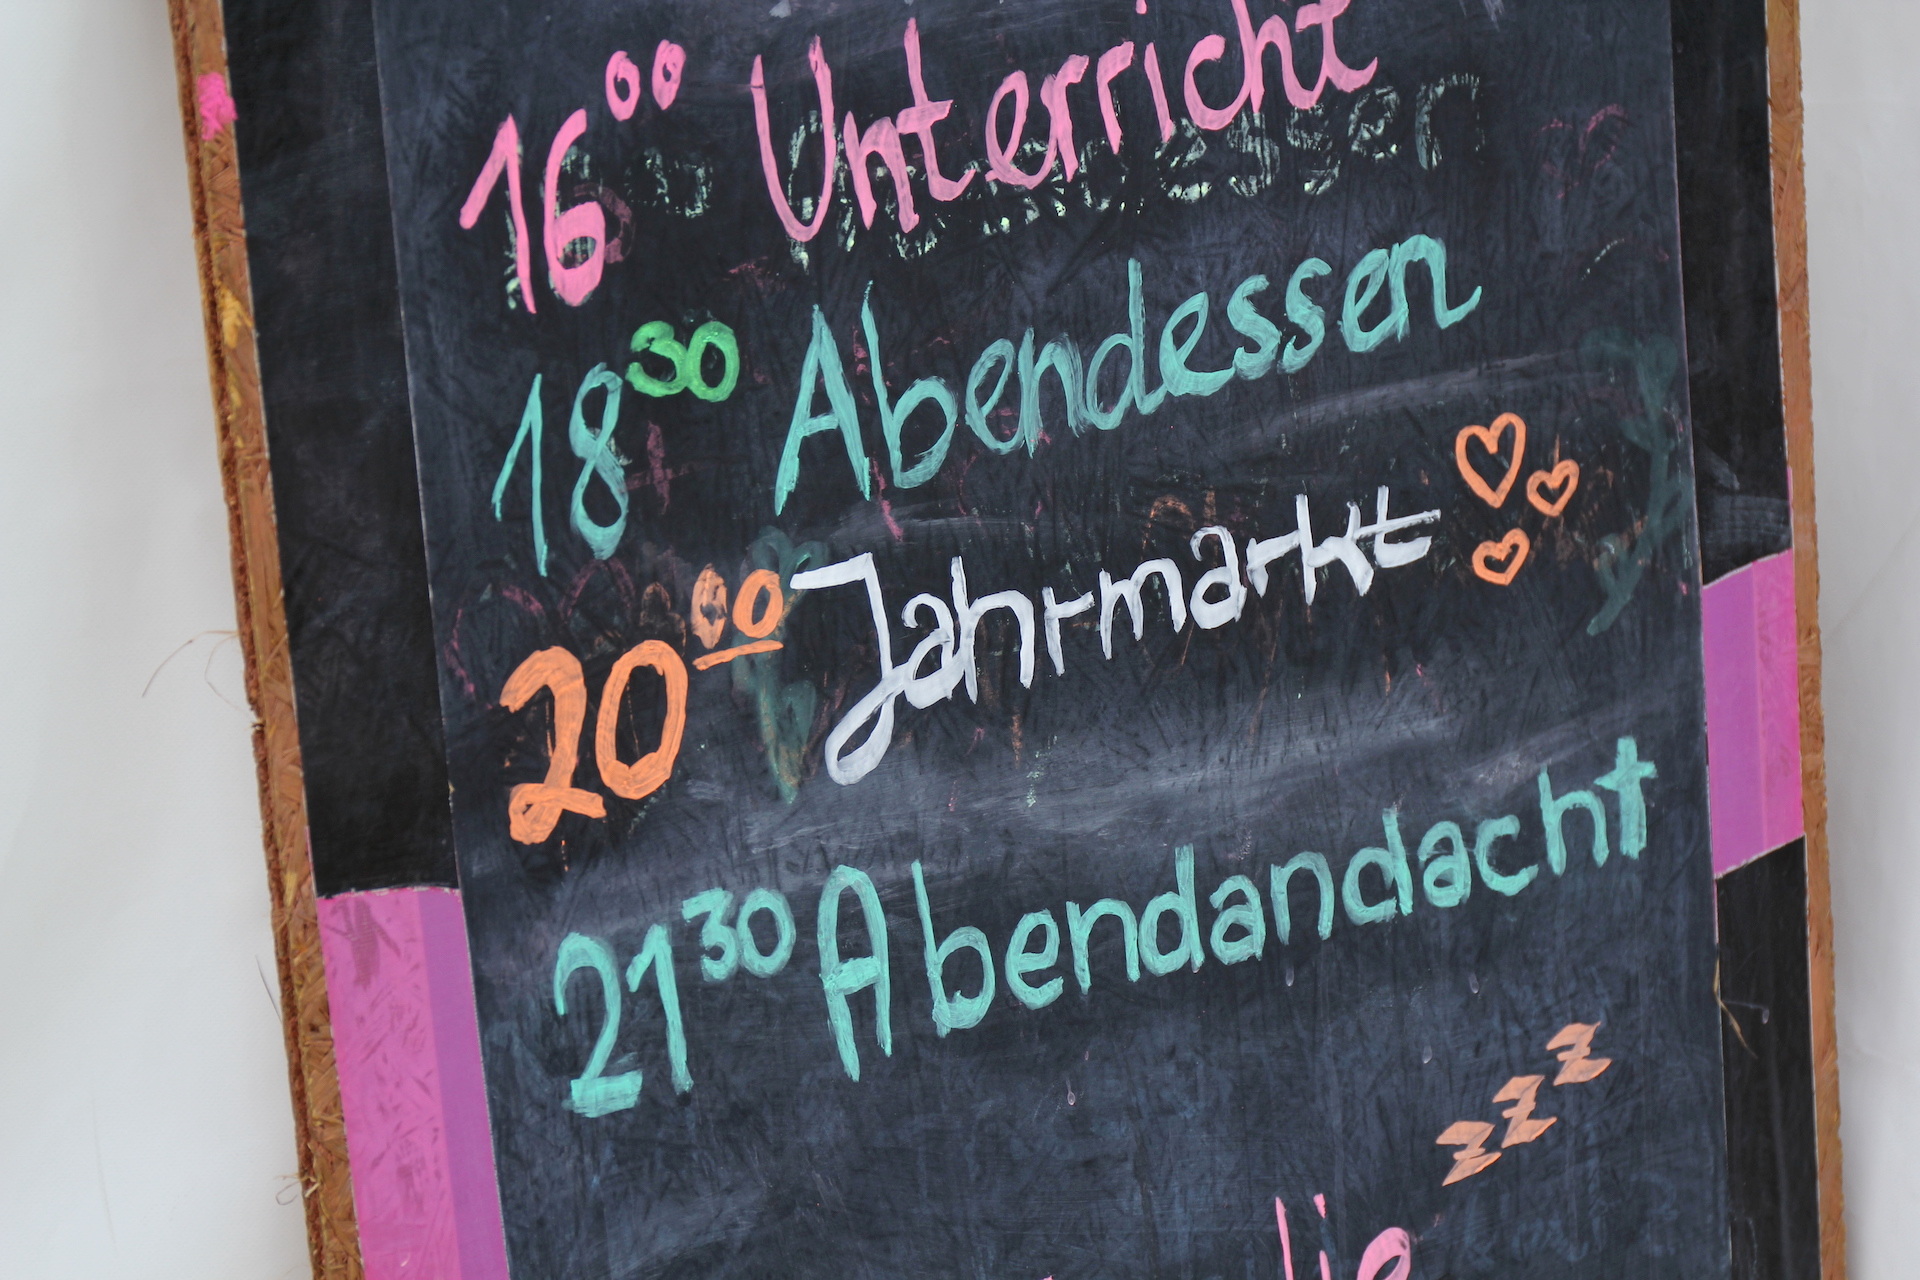 16⁰⁰ Unterricht
18³⁰ Abendessen
20⁰⁰ Jahrmarkt
21³⁰ Abendandacht
zzz